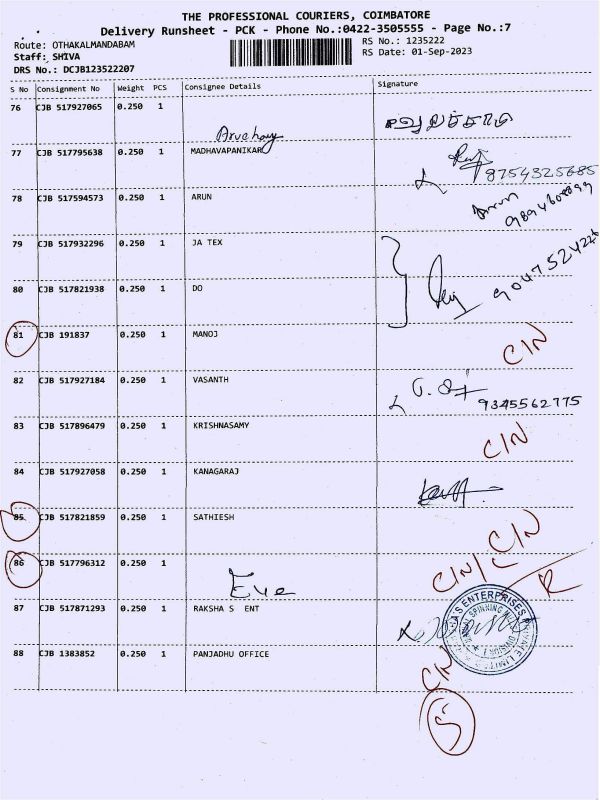 THE PROFESSIONAL COURIERS, COIMBATORE
Delivery Runsheet - PCK - Phone No.:0422-3505555 - Page No.:7
Route: OTHAKALMANDABAM RS No.: 1235222
Staff: SHIVA RS Date: 01-Sep-2023
DRS No.: DCJB123522207
S No Consignment No Weight PCS Consignee Details Signature
76 CJB 517927065 0.250 1
77 CJB 517795638 0.250 1 MADHAVAPANIKAR
9754325685
78 CJB 517594573 0.250 1 ARUN Arun
79 CJB 517932296 0.250 1 JA TEX
80 CJB 517821938 0.250 1 DO 9047524226
81 CJB 191837 0.250 1 MANOJ C/N
82 CJB 517927184 0.250 1 VASANTH
9345562775
83 CJB 517896479 0.250 1 KRISHNASAMY C/N
84 CJB 517927058 0.250 1 KANAGARAJ
85 CJB 517821859 0.250 1 SATHIESH C/N
86 CJB 517796312 0.250 1 C/N R
Eve
87 CJB 517871293 0.250 1 RAKSHA S ENT
ENTERPRISES PRIVATE LIMITED
SPINNING
DIVISION
88 CJB 1383852 0.250 1 PANJADHU OFFICE C/N
5